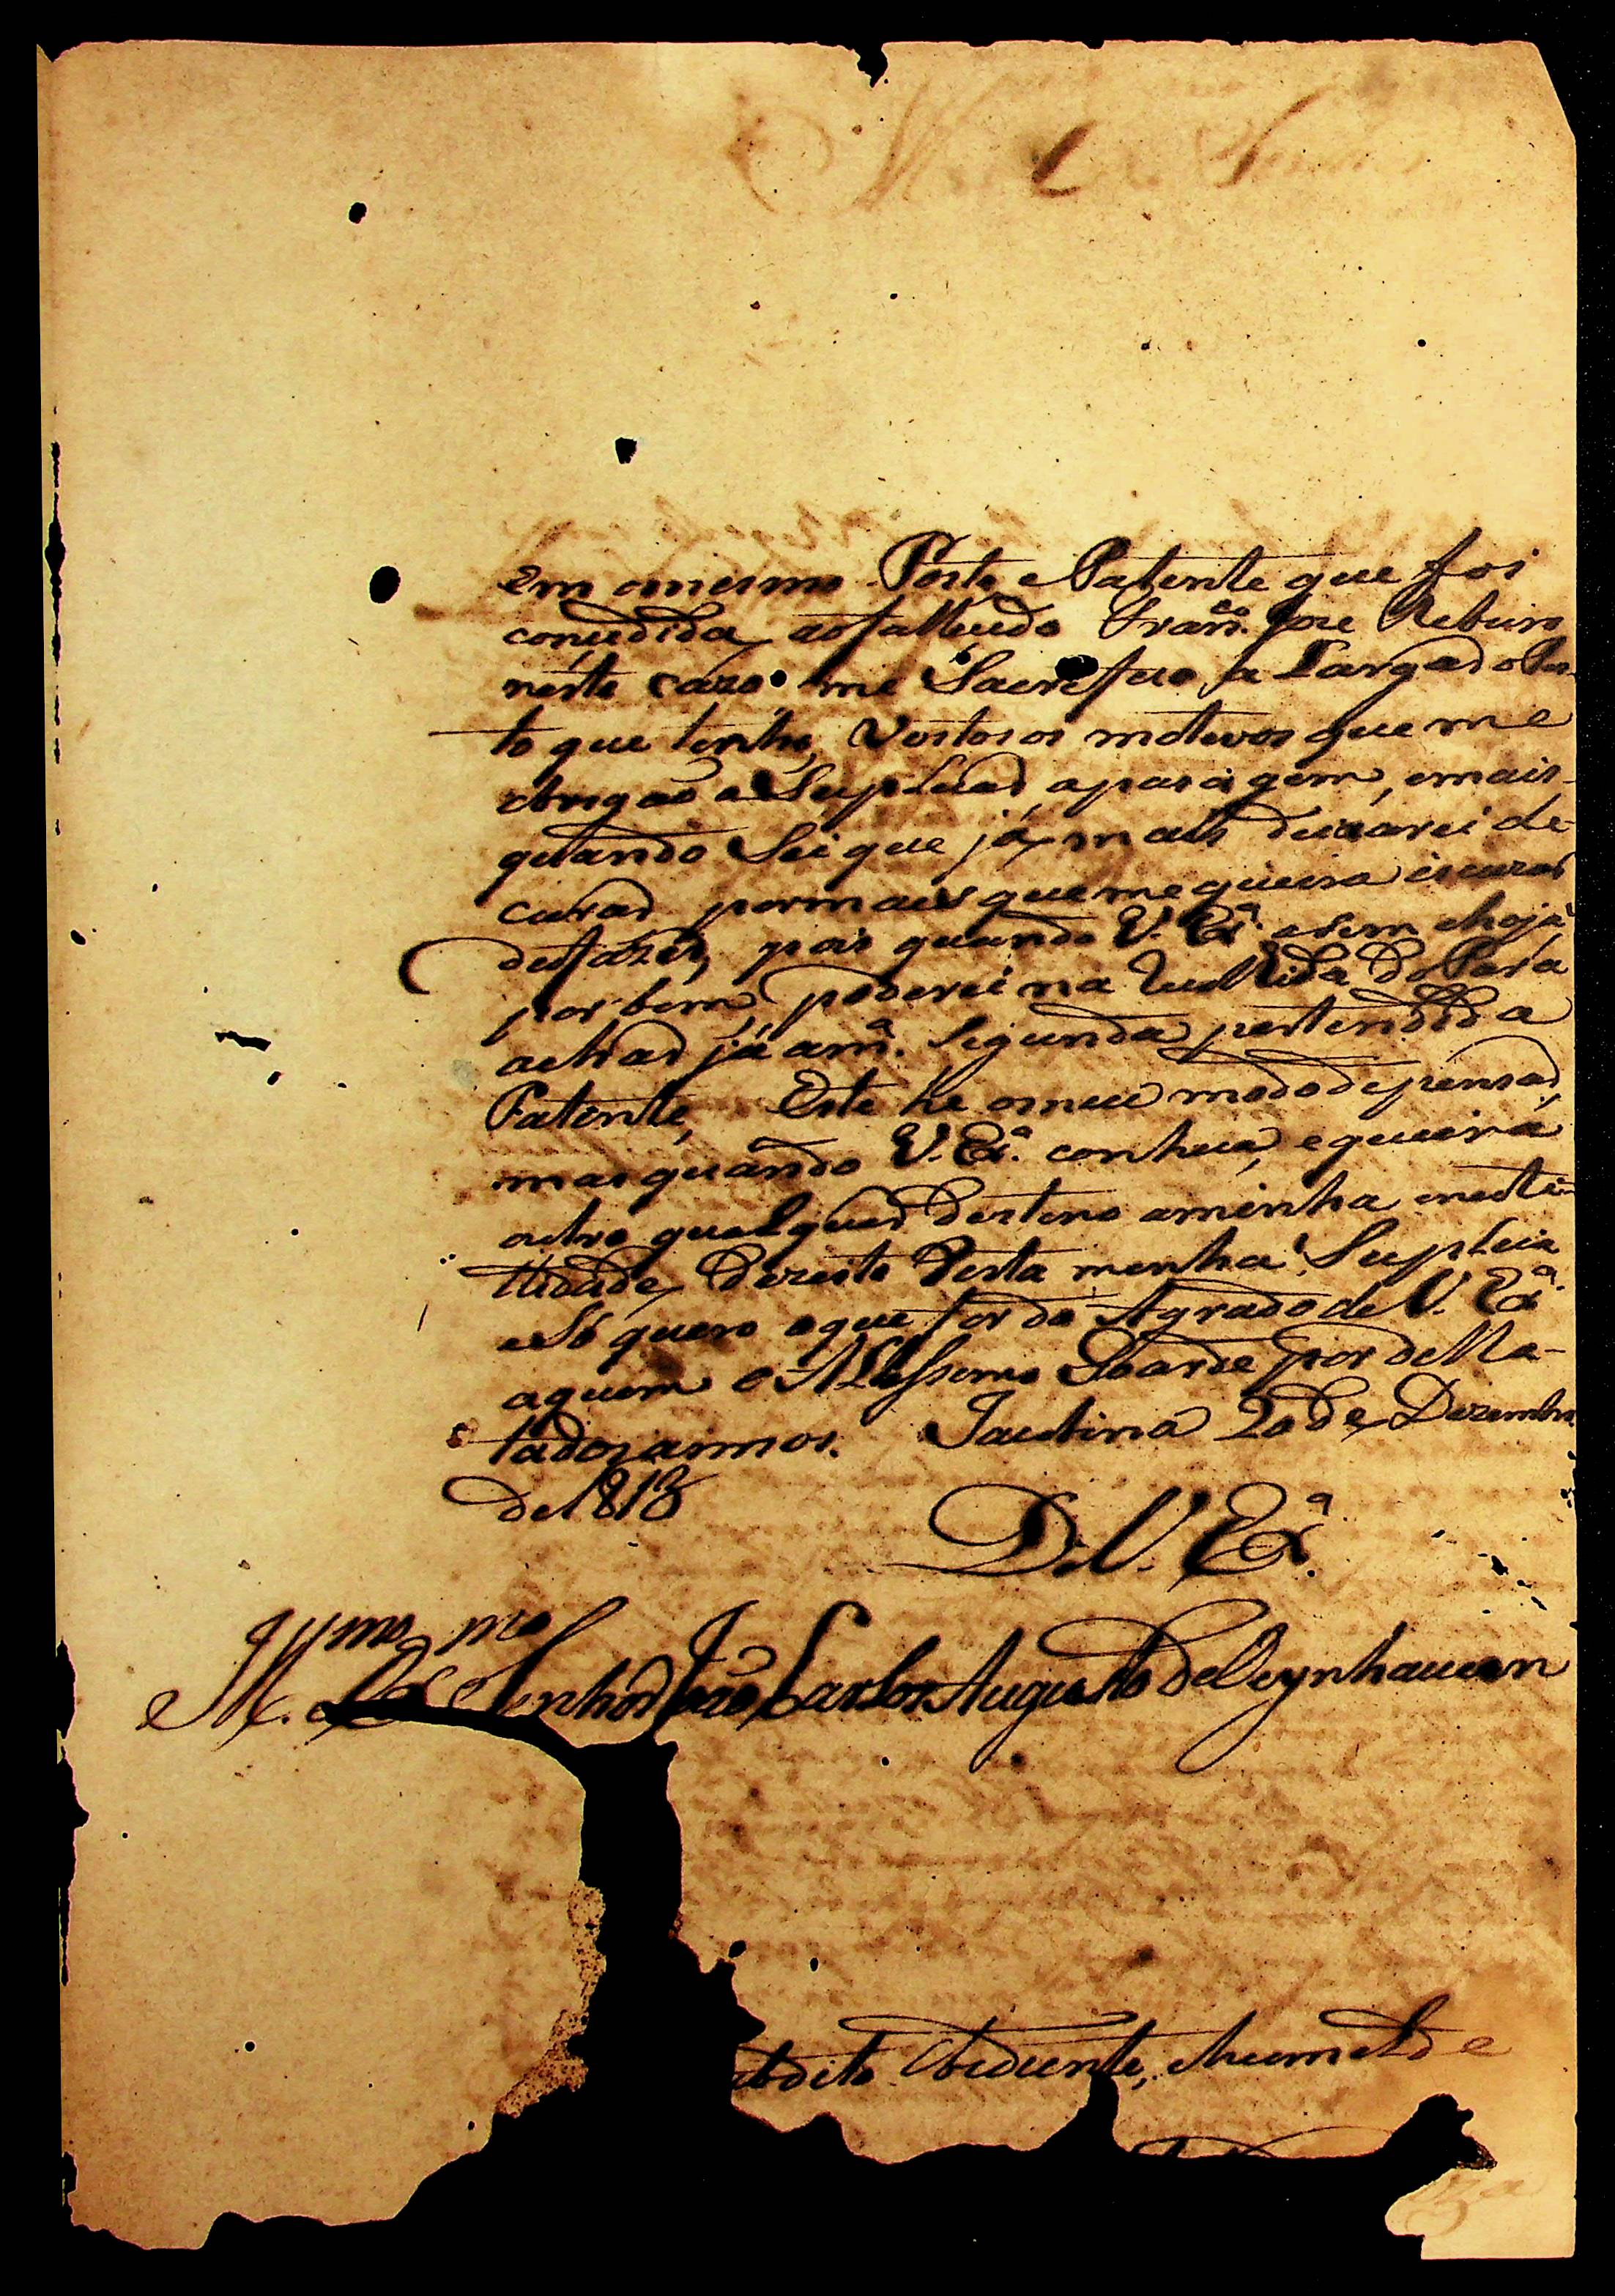 em o mesmo Posto e Patente que foi
concedida ao fallecido Fran.co Joze Rebeiro
neste cazo me Sacrefico a Largar o Pos-
to que tenho, Vistos os motivos que me
obrigaõ a Suplicar a pasagem, e mais
quando Sei que já mais deixarei de
curar por mais que me queira
desfazer, pois quando V. Ex.a asim o haja
por bem, poderei na do Pará
achar já a m.a Segunda pertendida
Patente, Este he o meu modo de pensar,
mas quando V. Ex.a conheça, e queira
outro qualquer destino a minha inuti-
llidade, dezisto desta minha Suplica
e Só quero o que for do Agrado de V. Ex.a
a quem o Altissemo Goarde por deLLa-
tados annos. Jacobina 20 de Dezembro
de 1813
D. V. Ex.a
Ill.mo e Ex.mo Senhor Joaõ Carlos Augusto de Oeynhausen
ubdito Obediente, e humelde